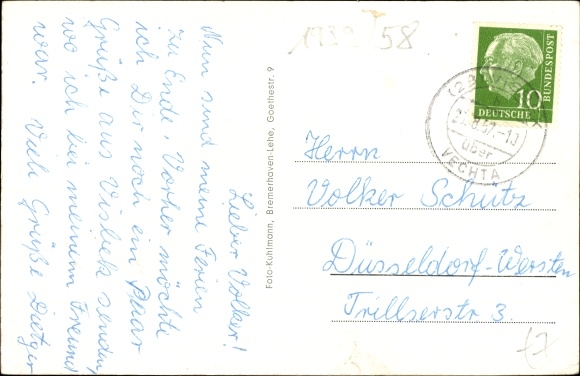 Lieber Volker!
Nun sind meine Ferien
zu Ende. Vorher möchte
ich Dir noch ein Paar
Grüße aus Visbek senden,
wo ich bei meinem Freund
war. Viele Grüße Dietger
Foto-Kuhlmann, Bremerhaven-Lehe, Goethestr. 9
58
DEUTSCHE
BUNDESPOST
10
über
VECHTA
Herrn
Volker Schütz
Düsseldorf-Wersten
Trillserstr 3.